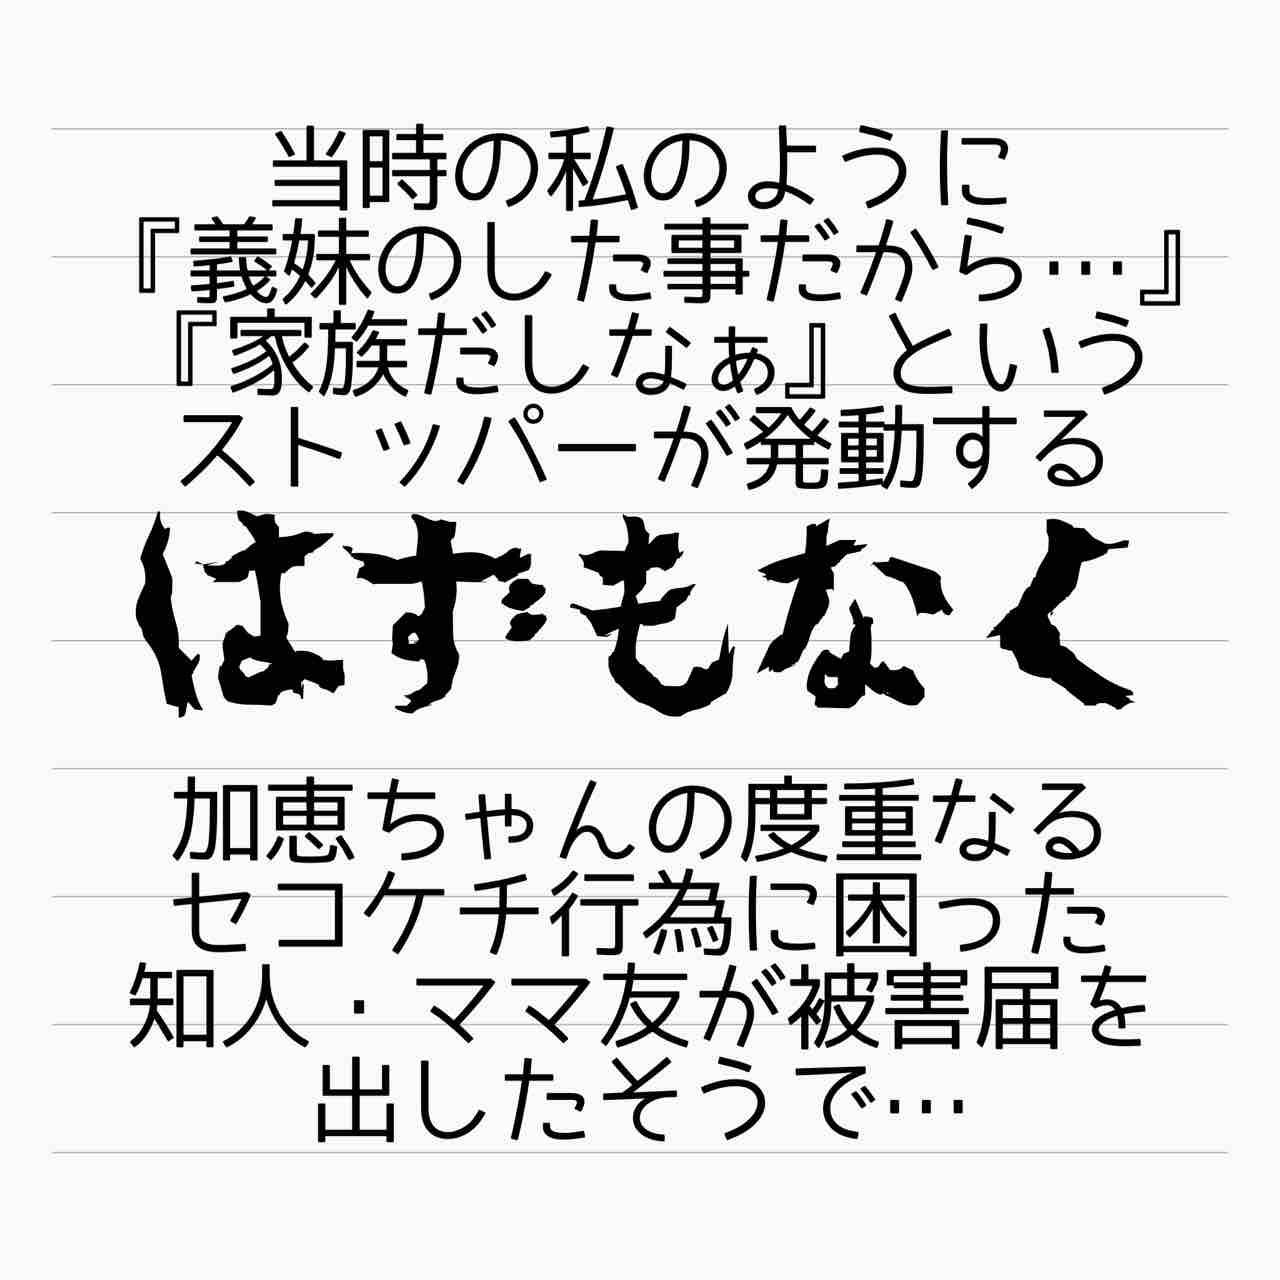 当時の私のように
『義妹のした事だから…』
『家族だしなぁ』という
ストッパーが発動する
はずもなく
加恵ちゃんの度重なる
セコケチ行為に困った
知人・ママ友が被害届を
出したそうで…